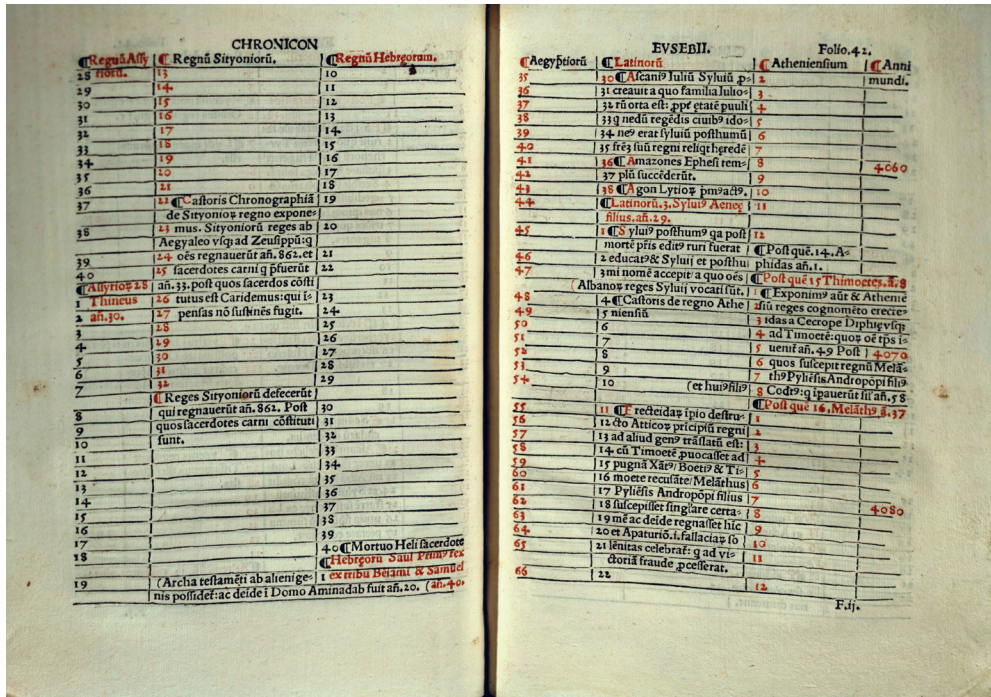 CHRONICON
¶Regnū Assy ¶ Regnū Sityoniorū. ¶Regnū Hebręorum.
28 riorū. 13 10
29 14 11
30 15 12
31 16 13
32 17 14
33 18 15
34 19 16
35 20 17
36 21 18
37 22 ¶Castoris Chronographiā 19
de Sityonioꝝ regno expone⸗
38 23 mus. Sityoniorū reges ab 20
Aegyaleo vsqꝫ ad Zeusippū:q
39 24 oēs regnauerūt añ. 862.et 21
40 25 sacerdotes carni q p̄fuerūt 22
¶Assyrioꝝ 28 añ.33.post quos sacerdos cōsti
1 Thineus 26 tutus est Caridemus:qui i⸗ 23
2 añ.30. 27 pensas nō sustinēs fugit. 24
3 28 25
4 29 26
5 30 27
6 31 28
7 32 29
¶ Reges Sityoniorū defecerūt
8 qui regnauerūt añ. 862. Post 30
9 quos sacerdotes carni cōstituti 31
10 sunt. 32
11 33
12 34
13 35
14 36
15 37
16 38
17 39
18 40 ¶Mortuo Heli sacerdote
¶Hebręorū Saul Primꝰ rex
1 ex tribu Beiami & Samuel
19 (Archa testamēti ab alieni ge⸗ (añ.40.
nis possidet:ac deide i Domo Aminadab fuit añ.20.
EVSEBII. Folio.42.
¶Aegyptiorū ¶Latinorū ¶ Atheniensium ¶Anni
mundi.
35 30 ¶Ascaniꝰ Iuliū Syluiū ꝓ⸗ 2
36 31 creauit a quo familia Iulio⸗ 3
37 32 rū orta est: ꝓpt̄ ętatē puuli 4
38 33 q nedū regēdis ciuibꝰ ido⸗ 5
39 34 neꝰ erat syluiū posthumū 6
40 35 frēꝫ suū regni reliqt hęredē 7
41 36 ¶Amazones Ephesi tem⸗ 8 4060
42 37 plū succēderūt. 9
43 38 ¶Agon Lytioꝝ p̄mꝰactꝰ. 10
44 ¶Latinorū.3. Syluiꝰ Aeneę 11
filius.añ.29.
45 1 ¶Syluiꝰ posthumꝰ qa post 12
mortē pris editꝰ ruri fuerat ¶Post quē.14. A⸗
46 2 educatꝰ& Syluij et posthu phidas añ.1.
47 3 mi nomē accepit: a quo oēs ¶Post quē 15 Thimoetes.ā.8
(Albanoꝝ reges Syluij vocati sūt. 1 ¶Exponimꝰ aūt & Atheniē
48 4 ¶Castoris de regno Athe 2 siū reges cognomēto erecte⸗
49 5 niensiū 3 idas a Cecrope Diphyęvsqꝫ
50 6 4 ad Timoetē:quoꝝ oē tp̄s i⸗
51 7 5 uenit añ.49 Post 4070
52 8 6 quos suscepit regnū Melā⸗
53 9 7 thꝰPyliēsisAndropōpi filiꝰ
54 10 (et huiꝰfiliꝰ 8 Codrꝰ:q ipauerūt sił añ.58
¶Post quē 16. Melāthꝰ ā.37
55 11 ¶Erecteidaꝝ ipio destru⸗ 1
56 12 cto Atticoꝝ pricipiū regni 2
57 13 ad aliud genꝰ trāslatū est: 3
58 14 cū Timoetē ꝓuocasset ad 4
59 15 pugnā Xātꝰ/ Boetiꝰ & Ti⸗ 5
60 16 moete recusāte/ Melāthus 6
61 17 Pyliēsis Andropōpi filius 7
62 18 suscepisset singlare certa⸗ 8 4080
63 19 mē ac deide regnasset hic 9
64 20 et Apaturiō.i.fallaciaꝝ so 10
65 21 lēnitas celebrat̄: q ad vi⸗ 11
ctoriā fraude ꝓcesserat.
66 22 12
F.ij.